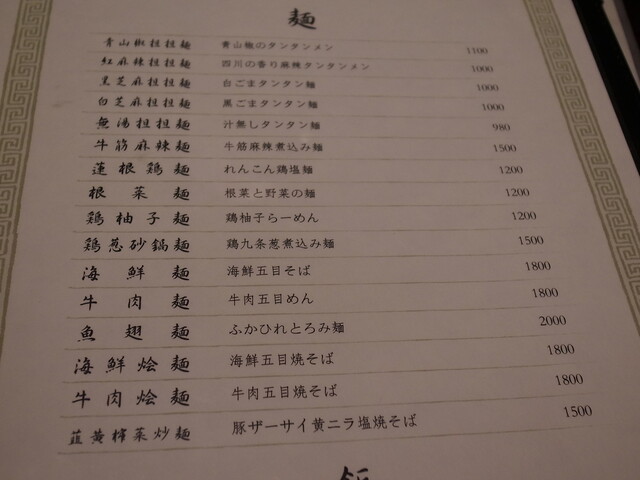 麺
青山椒担担麺 青山椒のタンタンメン 1100
紅麻辣担担麺 四川の香り麻辣タンタンメン 1000
黒芝麻担担麺 白ごまタンタン麺 1000
白芝麻担担麺 黒ごまタンタン麺 1000
無湯担担麺 汁無しタンタン麺 980
牛筋麻辣麺 牛筋麻辣煮込み麺 1500
蓮根鶏麺 れんこん鶏塩麺 1200
根菜麺 根菜と野菜の麺 1200
鶏柚子麺 鶏柚子らーめん 1200
鶏葱砂鍋麺 鶏九条葱煮込み麺 1500
海鮮麺 海鮮五目そば 1800
牛肉麺 牛肉五目めん 1800
魚翅麺 ふかひれとろみ麺 2000
海鮮烩麺 海鮮五目焼そば 1800
牛肉烩麺 牛肉五目焼そば 1800
韮黄榨菜炒麺 豚ザーサイ黄ニラ塩焼そば 1500